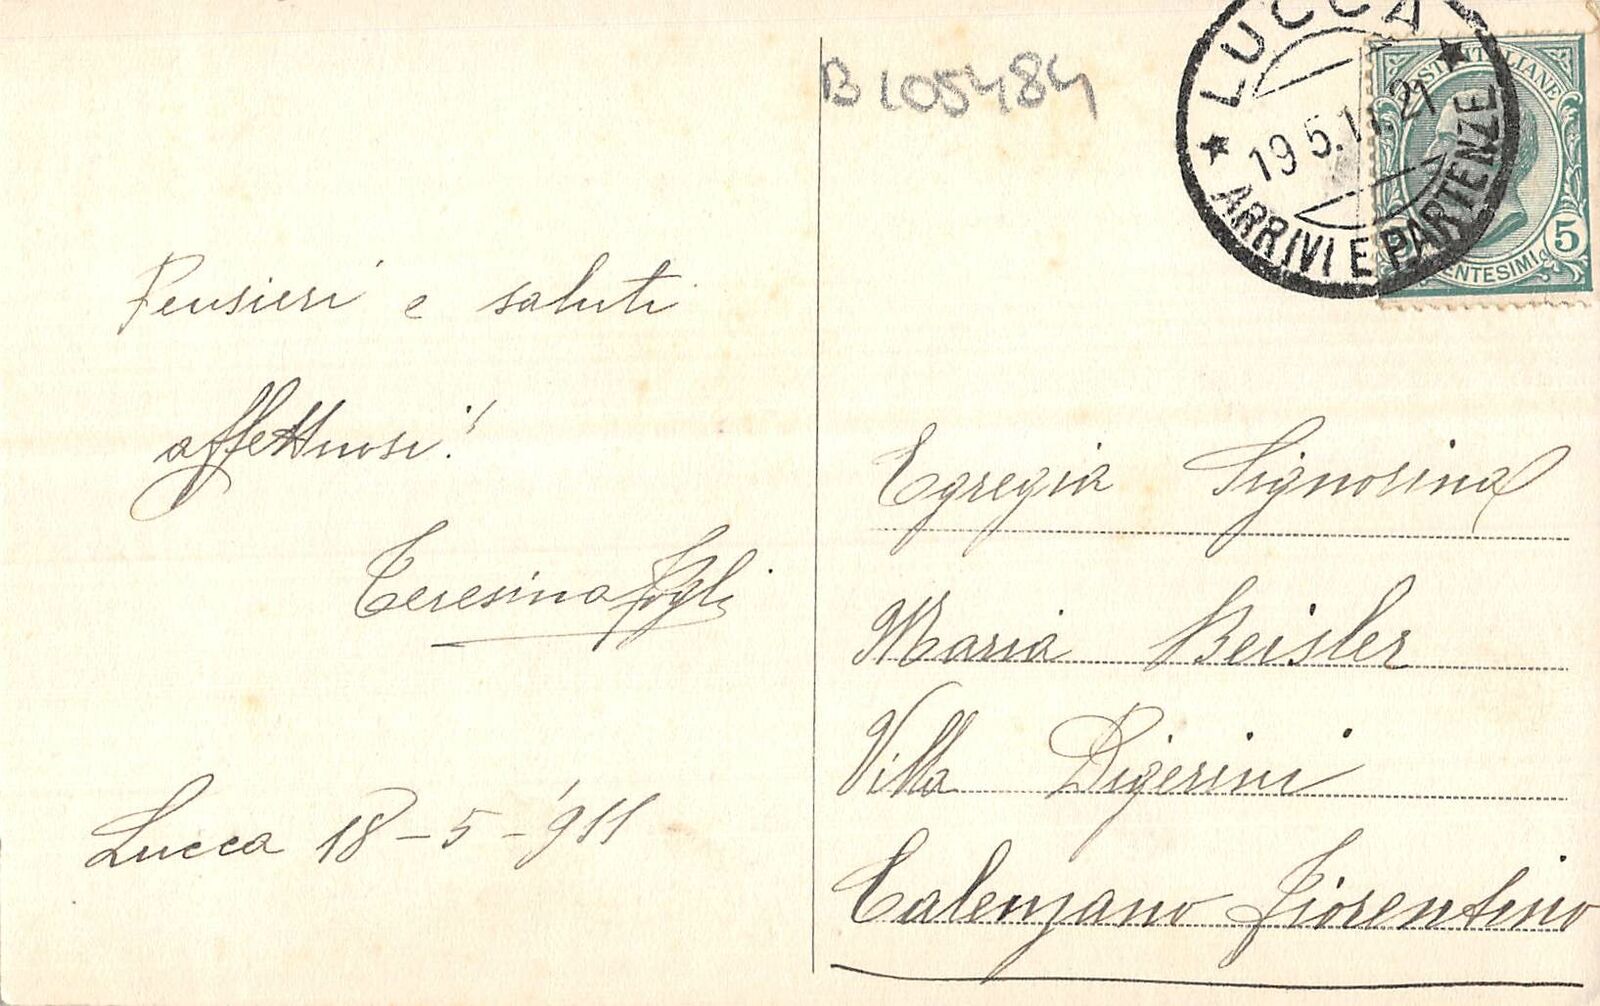 Pensieri e saluti
affettuosi!
Teresina Fogli
Lucca 18-5-'911
B105484
LUCCA
19 5.11.21
ARRIVI E PARTENZE
POSTE ITALIANE
5 CENTESIMI 5
Egregia Signorina
Maria Beisler
Villa Digerini
Calenzano Fiorentino